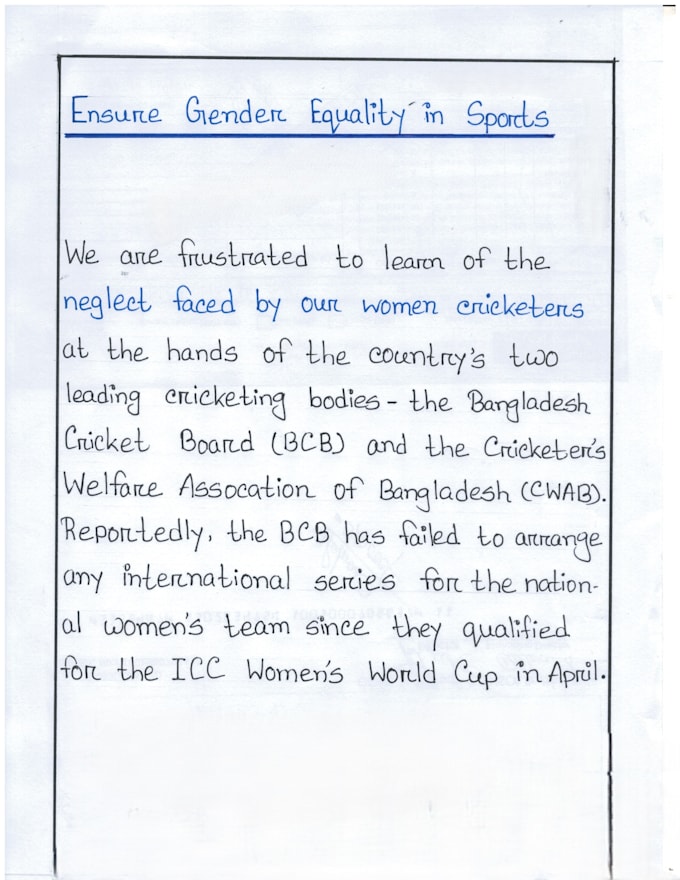 Ensure Gender Equality in Sports
We are frustrated to learn of the
neglect faced by our women cricketers
at the hands of the country's two
leading cricketing bodies - the Bangladesh
Cricket Board (BCB) and the Cricketer's
Welfare Assocation of Bangladesh (CWAB).
Reportedly, the BCB has failed to arrange
any international series for the nation-
al women's team since they qualified
for the ICC Women's World Cup in April.